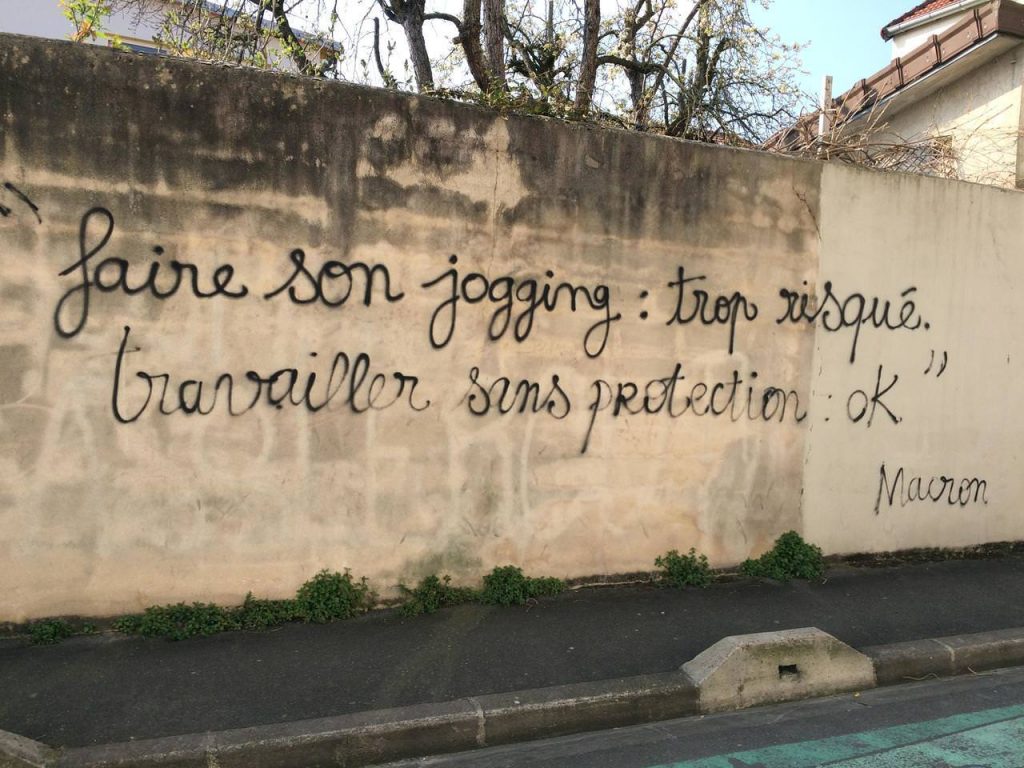 "faire son jogging : trop risqué.
travailler sans protection : OK."
Macron